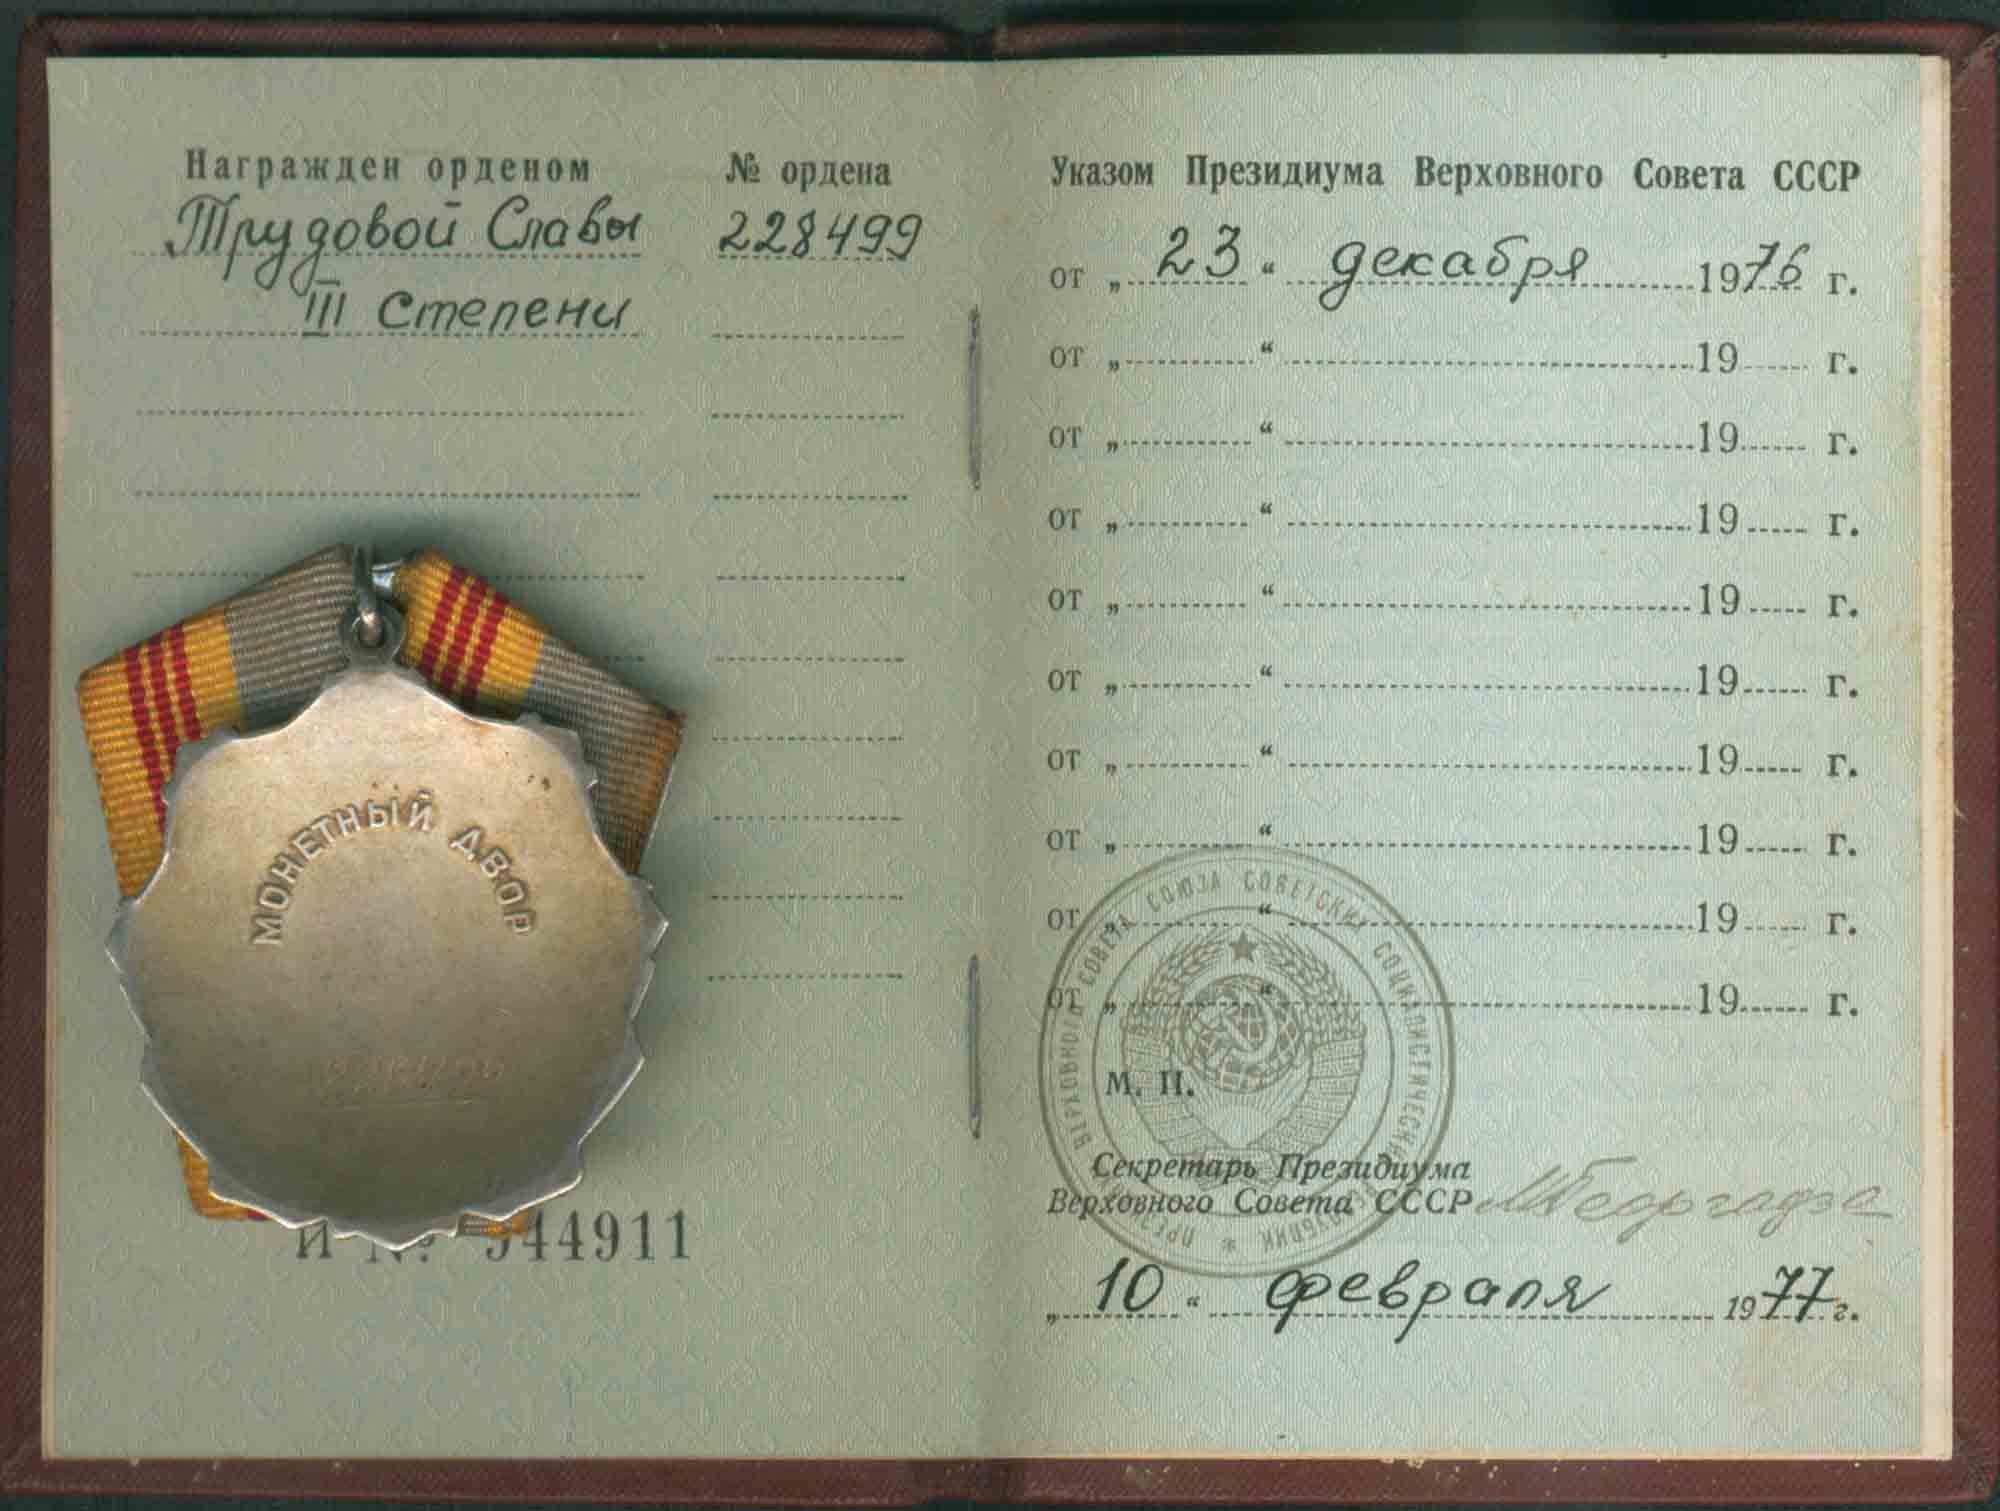 Награжден орденом
Трудовой Славы
III степени
№ ордена
228499
МОНЕТНЫЙ ДВОР
И № 944911
Указом Президиума Верховного Совета СССР
от „ 23 “ декабря 1976 г.
от „ “ 19 г.
от „ “ 19 г.
от „ “ 19 г.
от „ “ 19 г.
от „ “ 19 г.
от „ “ 19 г.
от „ “ 19 г.
от „ “ 19 г.
от „ “ 19 г.
ВЕРХОВНОГО СОВЕТА СОЮЗА СОВЕТСКИХ СОЦИАЛИСТИЧЕСКИХ
М. П.
Секретарь Президиума
Верховного Совета СССР МГеоргадзе
„ 10 “ февраля 1977 г.